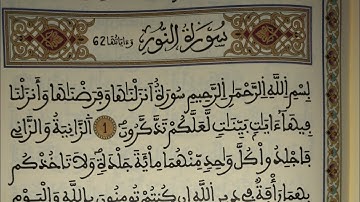 سُورَةُ النُّورِ وَءَايَاتُهَا 62
بِسْمِ اِ۬للَّهِ اِ۬لرَّحْمَٰنِ اِ۬لرَّحِيمِ سُورَةٌ اَنزَلْنَٰهَا وَفَرَضْنَٰهَا وَأَنزَلْنَا
فِيهَآ ءَايَٰتِۢ بَيِّنَٰتٖ لَّعَلَّكُمْ تَذَّكَّرُونَ 1 اَ۬لزَّانِيَةُ وَالزَّانِے
فَاجْلِدُواْ كُلَّ وَٰحِدٖ مِّنْهُمَا مِاْئَةَ جَلْدَةٖ وَلَا تَاخُذْكُم
بِهِمَا رَأْفَةٞ فِے دِينِ اِ۬للَّهِ إِن كُنتُمْ تُومِنُونَ بِاللَّهِ وَالْيَوْمِ